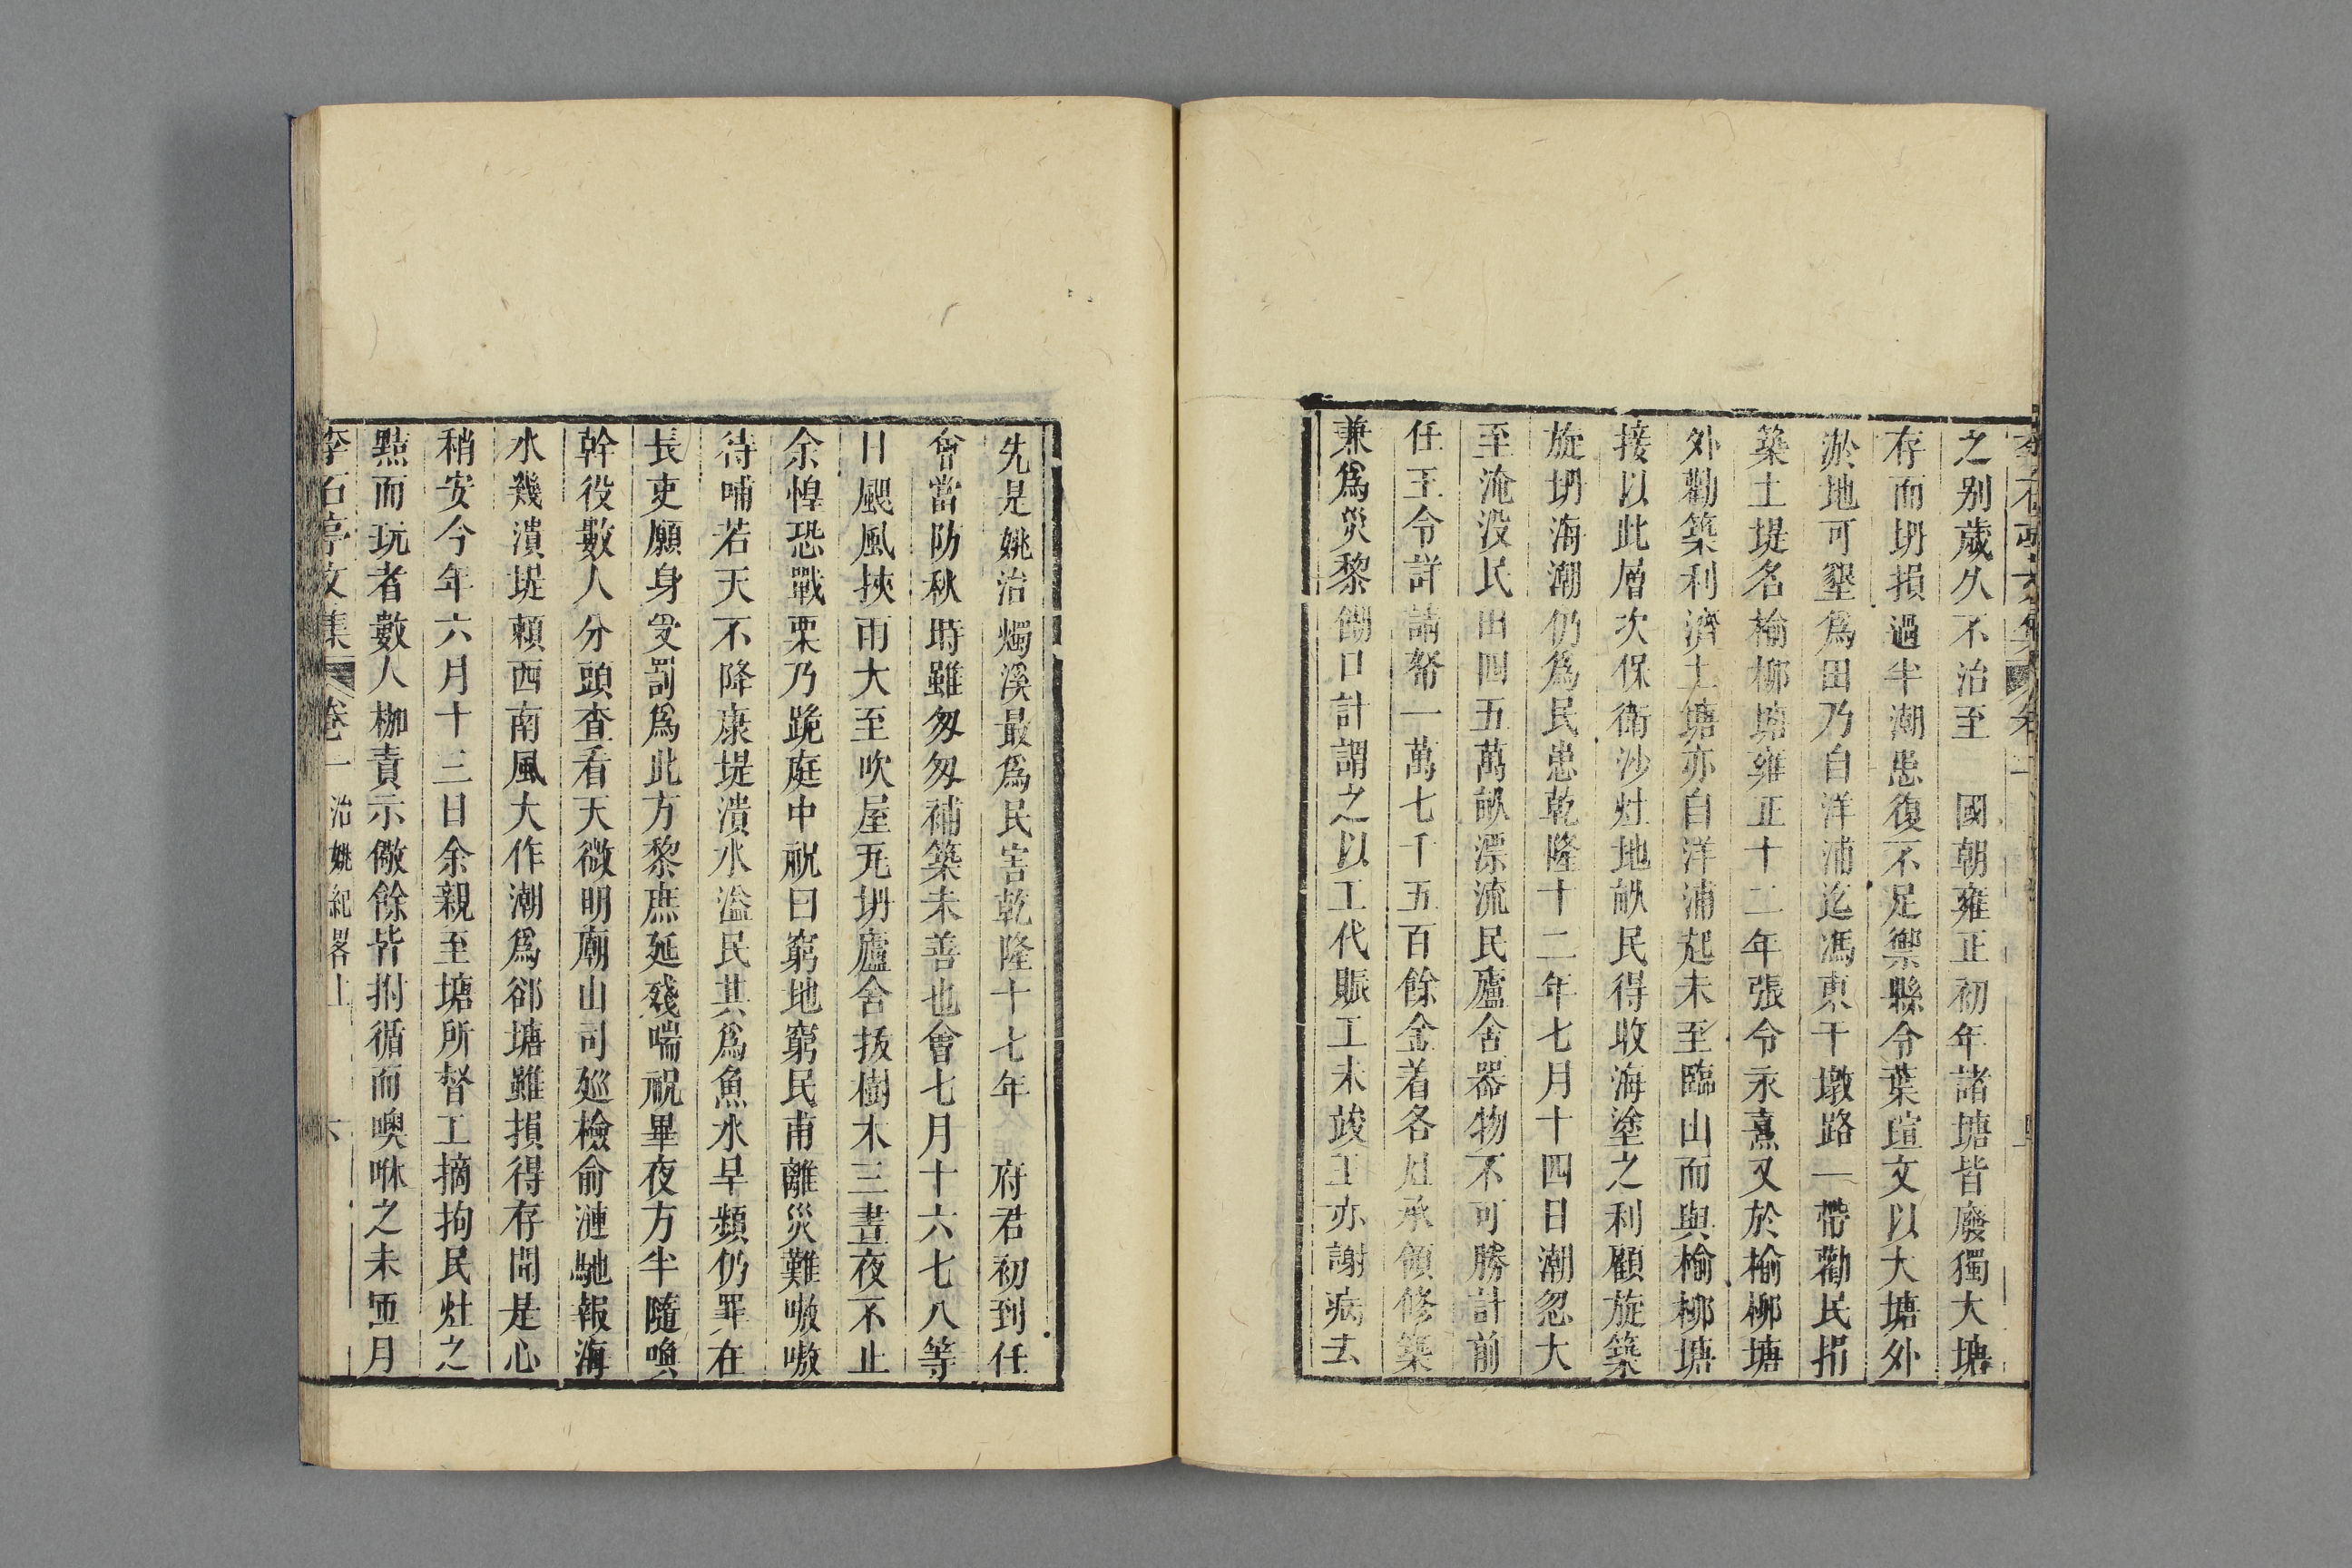 之别歲久不治至　國朝雍正初年諸塘皆廢獨大塘
存而坍損過半潮患復不足禦縣令葉瑄文以大塘外
淤地可墾爲田乃自洋浦迄馮東干墩路一帶勸民捐
築土堤名榆柳塘雍正十二年張令永熹又於榆柳塘
外勸築利濟土塘亦自洋浦起未至臨山而與榆柳塘
接以此層次保衛沙灶地畝民得收海塗之利顧旋築
旋坍海潮仍爲民患乾隆十二年七月十四日潮忽大
至淹没民田四五萬畝漂流民廬舍器物不可勝計前
任王令詳請帑一萬七千五百餘金着各灶承領修築
兼爲災黎餬口計謂之以工代賑工未竣王亦謝病去
先是姚治燭溪最爲民害乾隆十七年　府君初到任
會當防秋時雖匆匆補築未善也會七月十六七八等
日颶風挾雨大至吹屋瓦坍廬舍拔樹木三晝夜不止
余惶恐戰栗乃跪庭中祝曰窮地窮民甫離災難嗷嗷
待哺若天不降康堤潰水溢民其爲魚水旱頻仍罪在
長吏願身受罰爲此方黎庶延殘喘祝畢夜方半隨喚
幹役數人分頭查看天微明廟山司廵檢俞漣馳報海
水幾潰堤賴西南風大作潮爲郤塘雖損得存聞是心
稍安今年六月十三日余親至塘所督工摘拘民灶之
黠而玩者數人枷責示儆餘皆拊循而噢咻之未匝月
李石亭文集　卷一　治姚紀畧上　六